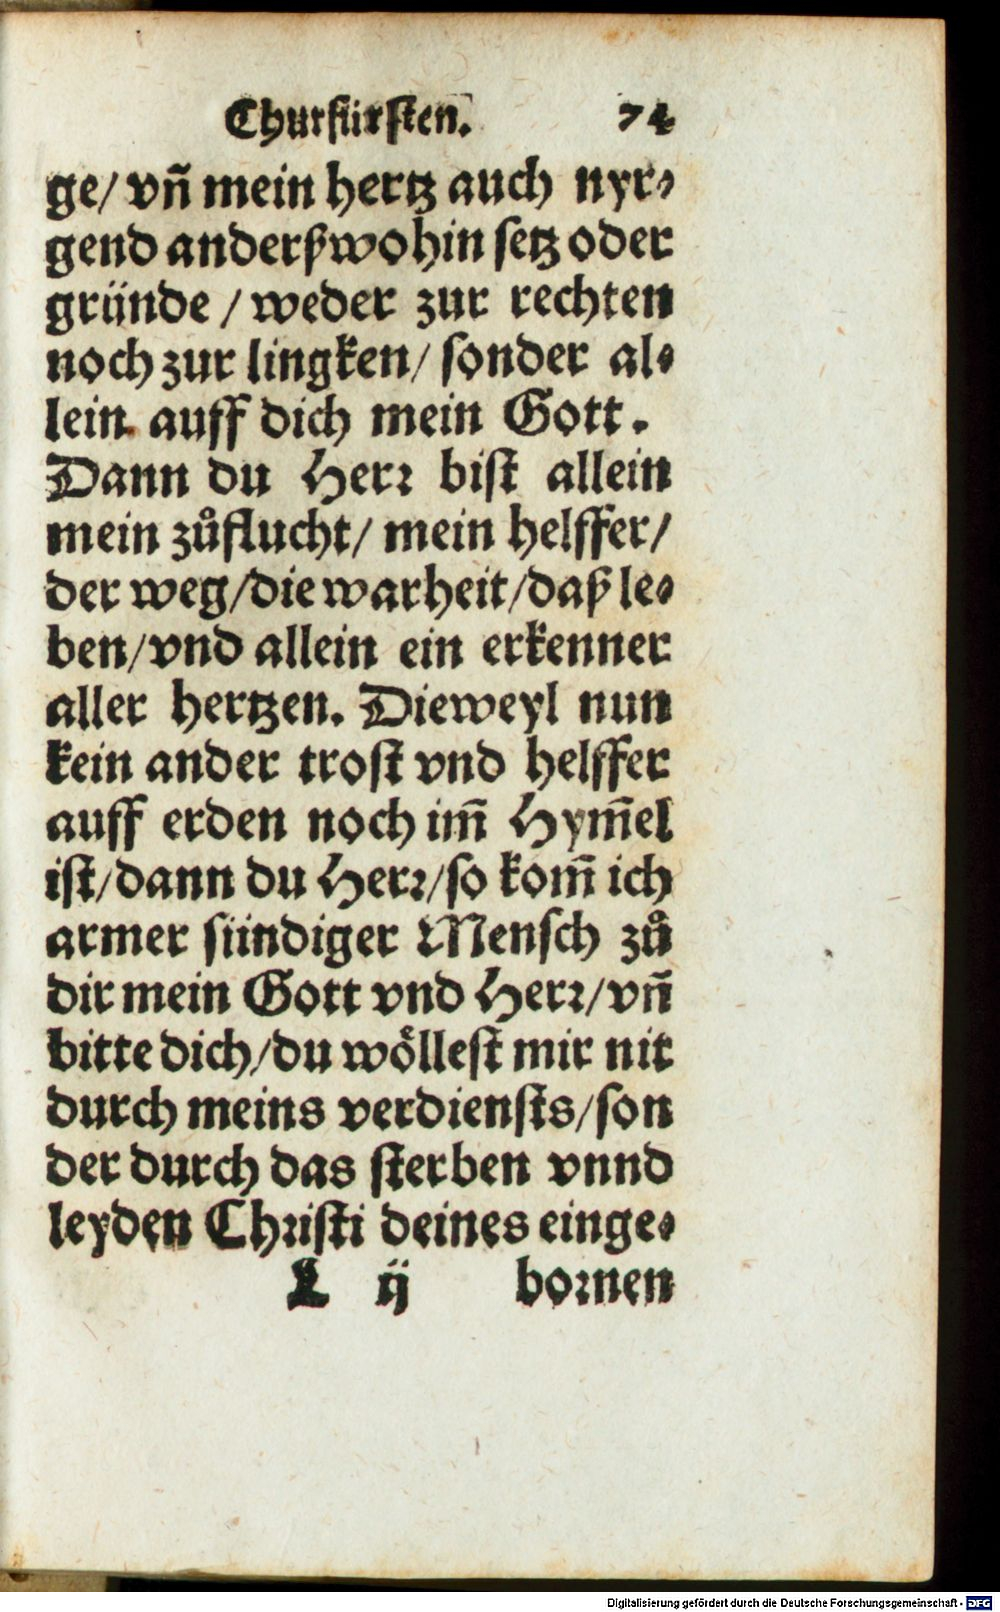 Churfürsten. 74
ge/ vñ mein hertz auch nyr⸗
gend anderßwohin setz oder
gründe / weder zur rechten
noch zur lingken/ sonder al⸗
lein auff dich mein Gott.
Dann du Herꝛ bist allein
mein zůflucht/ mein helffer/
der weg/die warheit/daß le⸗
ben/vnd allein ein erkenner
aller hertzen. Dieweyl nun
kein ander trost vnd helffer
auff erden noch im̃ Hym̃el
ist/dann du Herꝛ/so kom̃ ich
armer sündiger Mensch zů
dir mein Gott vnd Herꝛ/vñ
bitte dich/du wöllest mir nit
durch meins verdiensts/son
der durch das sterben vnnd
leyden Chꝛisti deines einge⸗
L ij boꝛnen
Digitalisierung gefördert durch die Deutsche Forschungsgemeinschaft - DFG